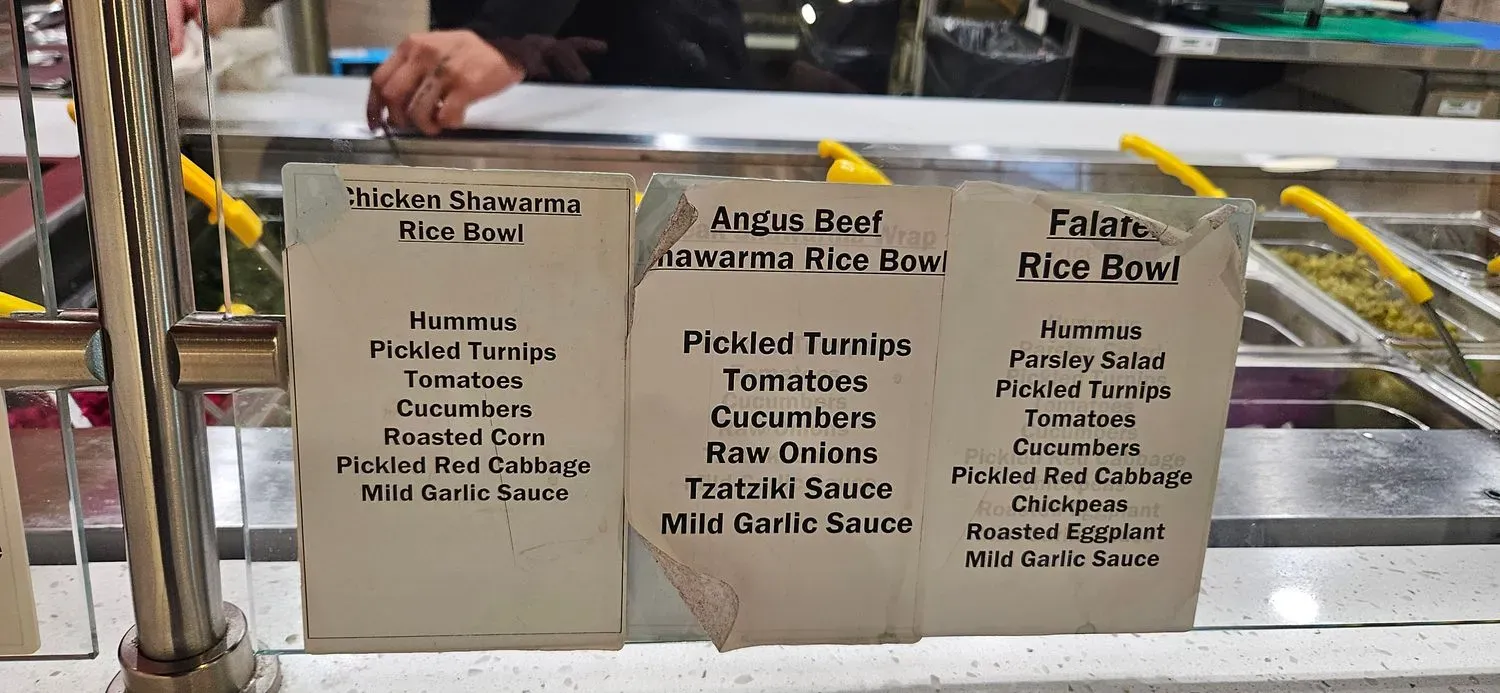 Chicken Shawarma
Rice Bowl
Hummus
Pickled Turnips
Tomatoes
Cucumbers
Roasted Corn
Pickled Red Cabbage
Mild Garlic Sauce
Angus Beef
hawarma Rice Bowl
Pickled Turnips
Tomatoes
Cucumbers
Raw Onions
Tzatziki Sauce
Mild Garlic Sauce
Falafe
Rice Bowl
Hummus
Parsley Salad
Pickled Turnips
Tomatoes
Cucumbers
Pickled Red Cabbage
Chickpeas
Roasted Eggplant
Mild Garlic Sauce